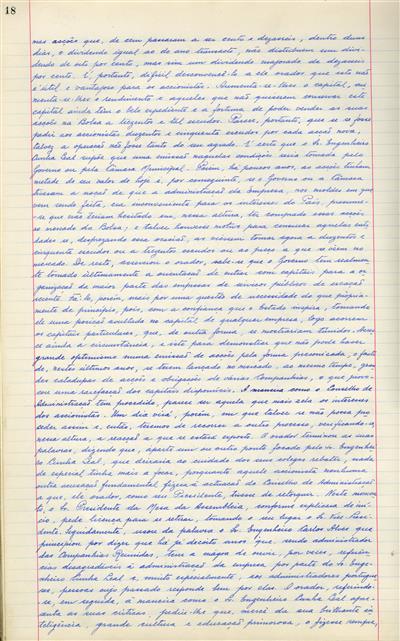 18
nas acções que, de cem passaram a ser cento e dezasseis, dentro duns
dias, o dividendo igual ao do ano transacto, não distribuem um divi-
dendo de oito por cento, mas sim um dividendo majorado de dezasseis
por cento. É, portanto, difícil desconvencê-lo a ele orador que esta não
é útil e vantajosa para os accionistas. Aumenta-se-lhes o capital, au-
menta-se-lhes o rendimento e aqueles que não quiserem conservar este
capital ainda têm o belo expediente e a fortuna de poder vender as suas
acções na Bolsa a trezentos e tal escudos. Parece, portanto, que se se fosse
pedir aos accionistas duzentos e cinquenta escudos por cada acção nova,
talvez a operação não fosse tanto do seu agrado. É certo que o Sr. Engenheiro
Cunha Leal supõe que uma emissão naquelas condições seria tomada pelo
Governo ou pela Câmara Municipal. Porém, há poucos anos, as acções tinham
metade do seu valor de hoje e, por conseguinte, se o Governo ou a Câmara
tivessem a noção de que a administração da Empresa, nos moldes em que
vem sendo feita, era inconveniente para os interesses do País, presume-
-se que não teriam hesitado em, nessa altura, ter comprado essas acções
no mercado da Bolsa; e talvez houvesse motivo para censurar aquelas enti-
dades se, desprezando essa ocasião, as viessem tomar agora a duzentos e
cinquenta escudos ou a trezentos escudos ou ao preço a que se vêem no
mercado. De resto, asseverou o orador, sabe-se que o Governo tem realmen-
te tomado ùltimamente a orientação de entrar com capitais para a or-
ganização da maior parte das empresas de serviços públicos de criação
recente. Fá-lo, porém, mais por uma questão de necessidade do que pròpria-
mente de princípio, pois, com a confiança que o Estado inspira, tomando
ele uma posição avultada no capital de qualquer empresa, logo acorrem
os capitais particulares, que, de outra forma, se mostrariam tímidos. Acres-
ce ainda a circunstância, e isto para demonstrar que não pode haver
grande optimismo numa emissão de acções pela forma preconizada, o facto
de, nestes últimos anos, se terem lançado no mercado, ao mesmo tempo, gran-
des caladupas de acções e obrigações de várias Companhias, o que provo-
cou uma rarefacção dos capitais disponíveis. A maneira como o Conselho de
Administração tem procedido, parece ser aquela que mais zela os interesses
dos accionistas. Um dia virá, porém, em que talvez se não possa pro-
ceder assim e, então, teremos de recorrer a outro processo, verificando-se,
nessa altura, a reacção a que se estará exposto. O orador terminou as suas
palavras, dizendo que, aparte um ou outro ponto focado pelo Sr. Engenhei-
ro Cunha Leal, que deixaria ao cuidado dos seus colegas rebater, nada
de especial tinha mais a focar, porquanto aquele accionista nenhuma
outra acusação fundamental fizera à actuação do Conselho de Administração
a que, ele orador, como seu Presidente, tivesse de retorquir. Neste momen-
to, o Sr. Presidente da Mesa da Assembleia, conforme explicara de iní-
cio, pede licença para se retirar, tomando o seu lugar o Sr. Vice-Presi-
dente. Seguidamente, usou da palavra o Sr. Engenheiro Carlos Alves que
principiou por dizer que há já dezoito anos que, sendo administrador
das Companhias Reunidas, tem a mágoa de ouvir, por vezes, referên-
cias desagradáveis à administração da empresa por parte do Sr. Enge-
nheiro Cunha Leal e, muito especialmente, aos administradores portugue-
ses, pessoas cujo passado responde bem por elas. O orador, referindo-
se, em seguida, à maneira como o Sr. Engenheiro Cunha Leal apre-
senta as suas críticas, pedir-lhe que, mercê da sua brilhante in-
teligência, grande cultura e educação primorosa, o fizesse sempre,